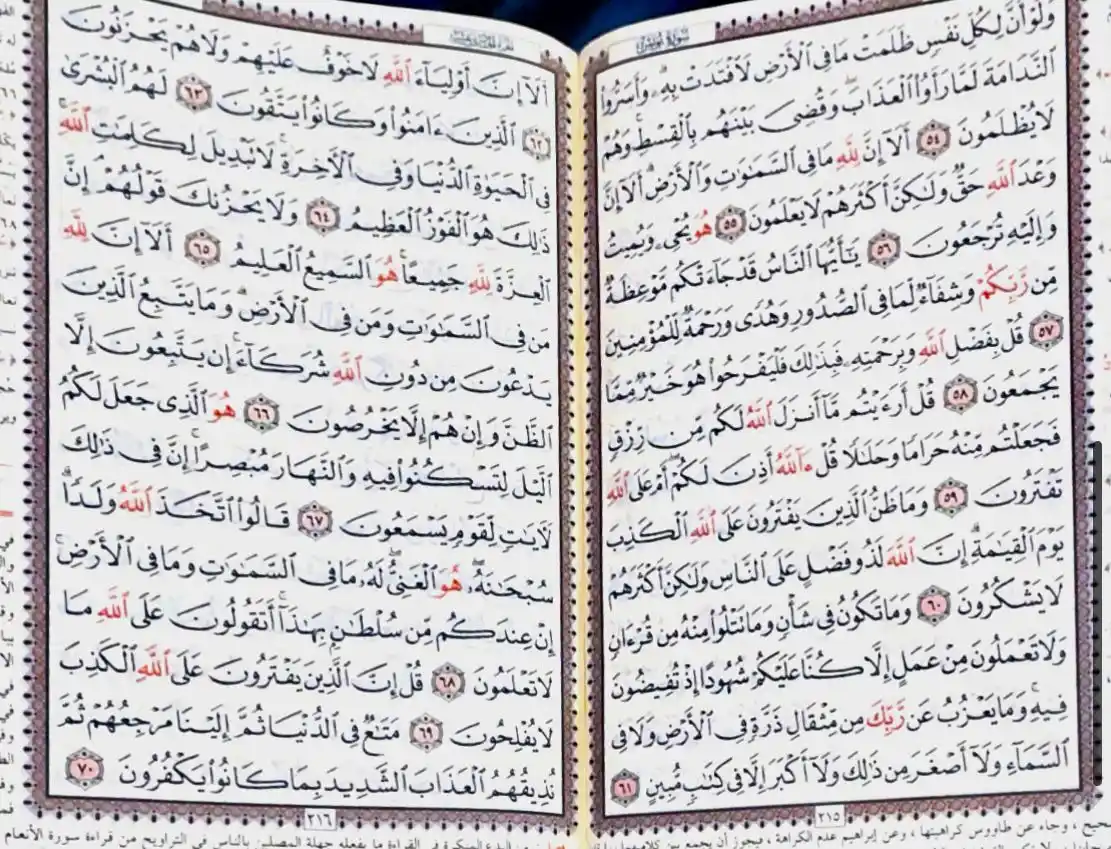 سُورَةُ يُونُسَ
وَلَوْ أَنَّ لِكُلِّ نَفْسٍ ظَلَمَتْ مَا فِي ٱلْأَرْضِ لَٱفْتَدَتْ بِهِۦۗ وَأَسَرُّوا۟
ٱلنَّدَامَةَ لَمَّا رَأَوُا۟ ٱلْعَذَابَۖ وَقُضِىَ بَيْنَهُم بِٱلْقِسْطِۚ وَهُمْ
لَا يُظْلَمُونَ ٥٤ أَلَآ إِنَّ لِلَّهِ مَا فِي ٱلسَّمَٰوَٰتِ وَٱلْأَرْضِۗ أَلَآ إِنَّ
وَعْدَ ٱللَّهِ حَقٌّ وَلَٰكِنَّ أَكْثَرَهُمْ لَا يَعْلَمُونَ ٥٥ هُوَ يُحْىِۦ وَيُمِيتُ
وَإِلَيْهِ تُرْجَعُونَ ٥٦ يَٰٓأَيُّهَا ٱلنَّاسُ قَدْ جَآءَتْكُم مَّوْعِظَةٌ
مِّن رَّبِّكُمْ وَشِفَآءٌ لِّمَا فِي ٱلصُّدُورِ وَهُدًى وَرَحْمَةٌ لِّلْمُؤْمِنِينَ
٥٧ قُلْ بِفَضْلِ ٱللَّهِ وَبِرَحْمَتِهِۦ فَبِذَٰلِكَ فَلْيَفْرَحُوا۟ هُوَ خَيْرٌ مِّمَّا
يَجْمَعُونَ ٥٨ قُلْ أَرَءَيْتُم مَّآ أَنزَلَ ٱللَّهُ لَكُم مِّن رِّزْقٍ
فَجَعَلْتُم مِّنْهُ حَرَامًا وَحَلَٰلًا قُلْ ءَآللَّهُ أَذِنَ لَكُمْۖ أَمْ عَلَى ٱللَّهِ
تَفْتَرُونَ ٥٩ وَمَا ظَنُّ ٱلَّذِينَ يَفْتَرُونَ عَلَى ٱللَّهِ ٱلْكَذِبَ
يَوْمَ ٱلْقِيَٰمَةِۗ إِنَّ ٱللَّهَ لَذُو فَضْلٍ عَلَى ٱلنَّاسِ وَلَٰكِنَّ أَكْثَرَهُمْ
لَا يَشْكُرُونَ ٦٠ وَمَا تَكُونُ فِي شَأْنٍ وَمَا تَتْلُوا۟ مِنْهُ مِن قُرْءَانٍ
وَلَا تَعْمَلُونَ مِنْ عَمَلٍ إِلَّا كُنَّا عَلَيْكُمْ شُهُودًا إِذْ تُفِيضُونَ
فِيهِۚ وَمَا يَعْزُبُ عَن رَّبِّكَ مِن مِّثْقَالِ ذَرَّةٍ فِي ٱلْأَرْضِ وَلَا فِي
ٱلسَّمَآءِ وَلَآ أَصْغَرَ مِن ذَٰلِكَ وَلَآ أَكْبَرَ إِلَّا فِي كِتَٰبٍ مُّبِينٍ ٦١
٢١٥
وجاء عن طاووس كراهيتها ، وعن إبراهيم عدم الكراهة ، فيجوز أن يجمع بين
أَلَآ إِنَّ أَوْلِيَآءَ ٱللَّهِ لَا خَوْفٌ عَلَيْهِمْ وَلَا هُمْ يَحْزَنُونَ
٦٢ ٱلَّذِينَ ءَامَنُوا۟ وَكَانُوا۟ يَتَّقُونَ ٦٣ لَهُمُ ٱلْبُشْرَىٰ
فِي ٱلْحَيَوٰةِ ٱلدُّنْيَا وَفِي ٱلْءَاخِرَةِۚ لَا تَبْدِيلَ لِكَلِمَٰتِ ٱللَّهِۚ
ذَٰلِكَ هُوَ ٱلْفَوْزُ ٱلْعَظِيمُ ٦٤ وَلَا يَحْزُنكَ قَوْلُهُمْۘ إِنَّ
ٱلْعِزَّةَ لِلَّهِ جَمِيعًاۚ هُوَ ٱلسَّمِيعُ ٱلْعَلِيمُ ٦٥ أَلَآ إِنَّ لِلَّهِ
مَن فِي ٱلسَّمَٰوَٰتِ وَمَن فِي ٱلْأَرْضِۗ وَمَا يَتَّبِعُ ٱلَّذِينَ
يَدْعُونَ مِن دُونِ ٱللَّهِ شُرَكَآءَۚ إِن يَتَّبِعُونَ إِلَّا
ٱلظَّنَّ وَإِنْ هُمْ إِلَّا يَخْرُصُونَ ٦٦ هُوَ ٱلَّذِي جَعَلَ لَكُمُ
ٱلَّيْلَ لِتَسْكُنُوا۟ فِيهِ وَٱلنَّهَارَ مُبْصِرًاۚ إِنَّ فِي ذَٰلِكَ
لَءَايَٰتٍ لِّقَوْمٍ يَسْمَعُونَ ٦٧ قَالُوا۟ ٱتَّخَذَ ٱللَّهُ وَلَدًاۗ
سُبْحَٰنَهُۥۖ هُوَ ٱلْغَنِىُّۖ لَهُۥ مَا فِي ٱلسَّمَٰوَٰتِ وَمَا فِي ٱلْأَرْضِۚ
إِنْ عِندَكُم مِّن سُلْطَٰنٍۭ بِهَٰذَآۚ أَتَقُولُونَ عَلَى ٱللَّهِ مَا
لَا تَعْلَمُونَ ٦٨ قُلْ إِنَّ ٱلَّذِينَ يَفْتَرُونَ عَلَى ٱللَّهِ ٱلْكَذِبَ
لَا يُفْلِحُونَ ٦٩ مَتَٰعٌ فِي ٱلدُّنْيَا ثُمَّ إِلَيْنَا مَرْجِعُهُمْ ثُمَّ
نُذِيقُهُمُ ٱلْعَذَابَ ٱلشَّدِيدَ بِمَا كَانُوا۟ يَكْفُرُونَ ٧٠
٢١٦
من البدع المنكرة في القراءة ما يفعله جهلة المصلين بالناس في التراويح من قراءة سورة الأنعام